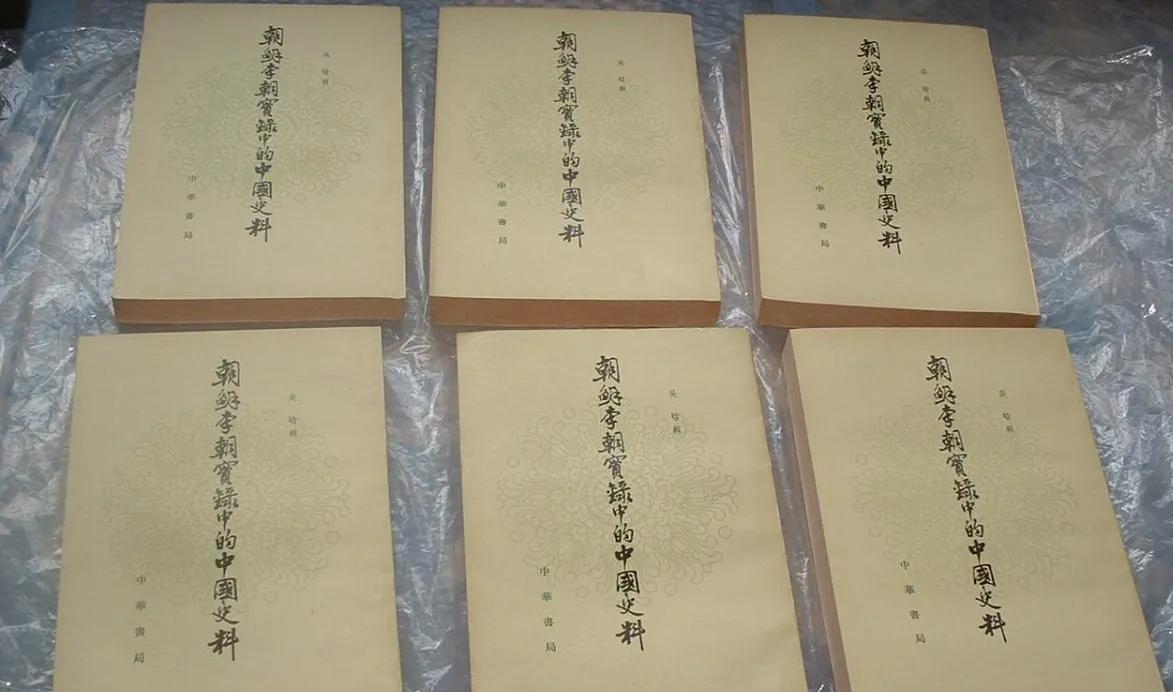 吳晗輯
朝鮮李朝實錄中的中國史料
中華書局
吳晗輯
朝鮮李朝實錄中的中國史料
中華書局
吳晗輯
朝鮮李朝實錄中的中國史料
中華書局
吳晗輯
朝鮮李朝實錄中的中國史料
中華書局
吳晗輯
朝鮮李朝實錄中的中國史料
中華書局
吳晗輯
朝鮮李朝實錄中的中國史料
中華書局